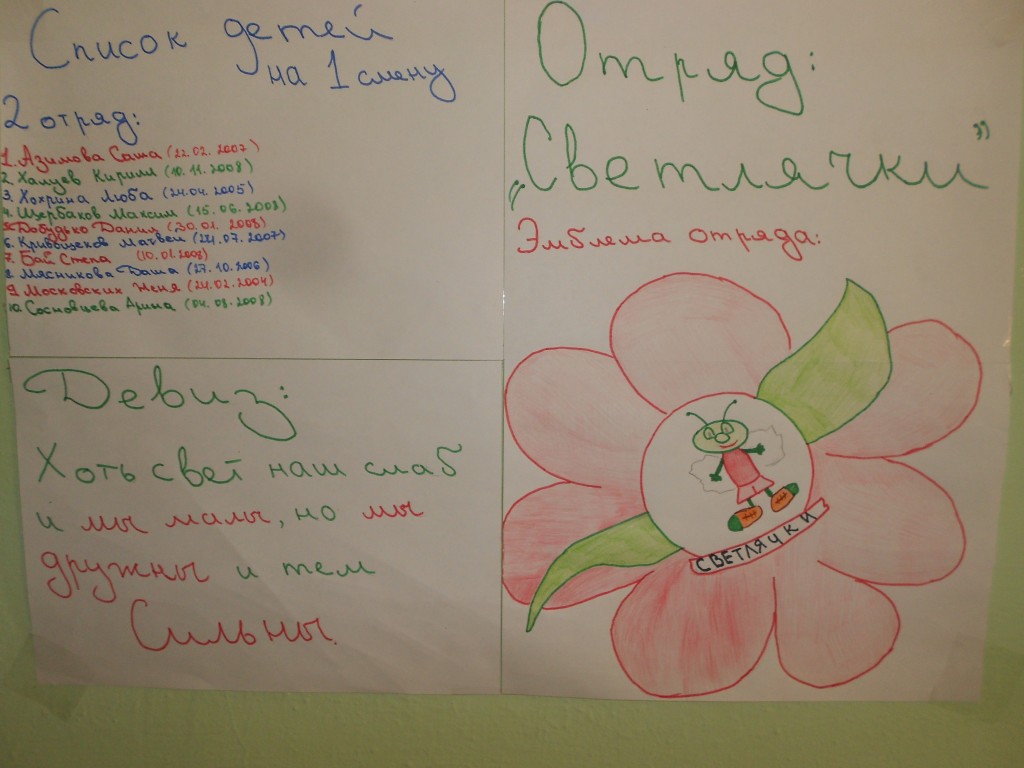 Список детей
на 1 смену
2 отряд:
1. Азимова Саша (22.02.2007)
2. Халуев Кирилл (10.11.2008)
3. Хохрина Люба (24.04.2005)
4. Щербаков Максим (15.06.2008)
5. Даниил (30.01.2008)
6. Кривощеков Матвей (24.07.2007)
7. Бай Степа (10.01.2008)
8. Мясникова Даша (27.10.2006)
9. Московских Женя (24.02.2004)
10. Сосновцева Арина (04.08.2008)
Девиз:
Хоть свет наш слаб
и мы малы, но мы
дружны и тем
Сильны.
Отряд:
„Светлячки”
Эмблема отряда:
СВЕТЛЯЧКИ